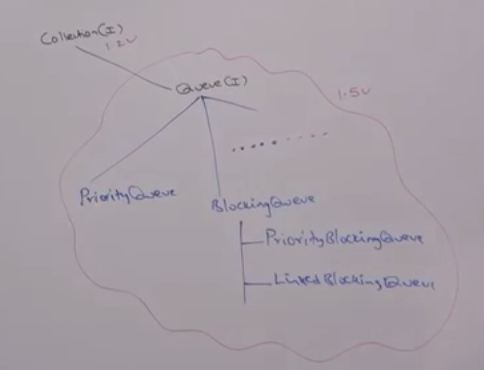 Collection(I)
1.2v
Queue(I)
1.5v
PriorityQueue
BlockingQueue
PriorityBlockingQueue
LinkedBlockingQueue